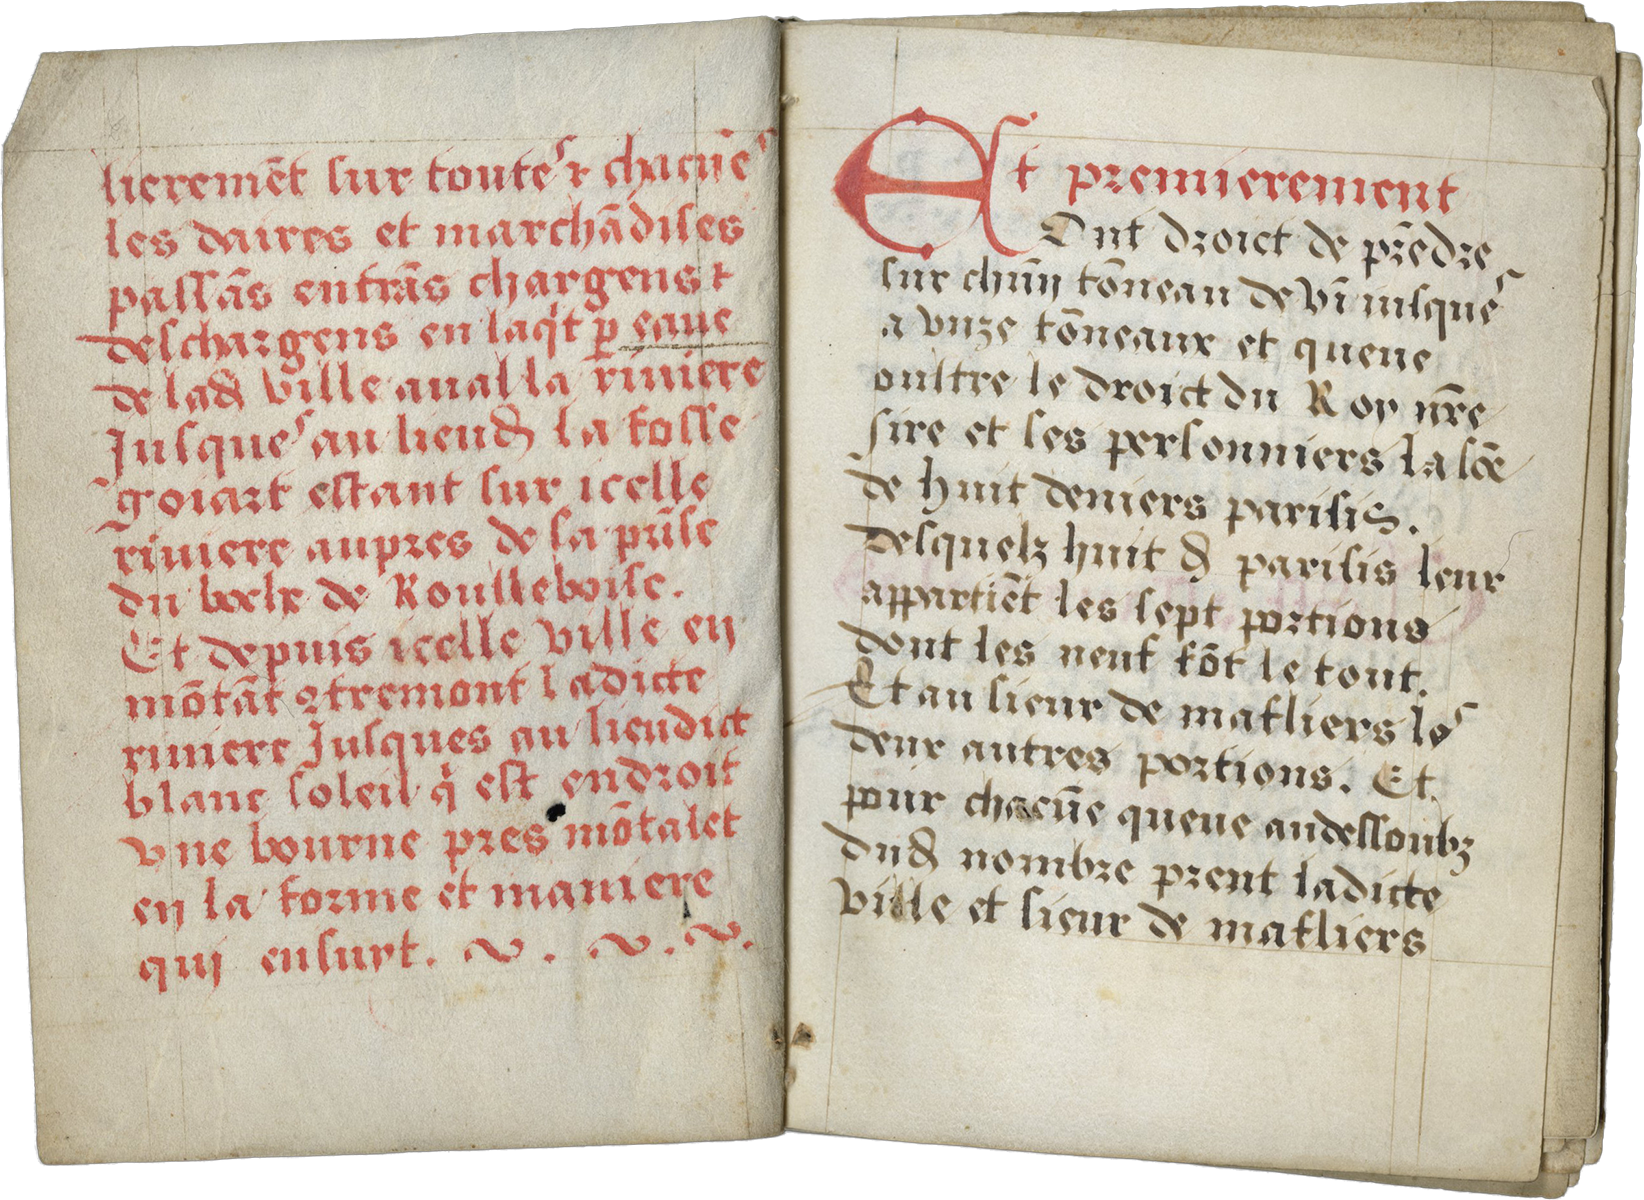 lieremēt sur toutes ⁊ chacūes
les daires et marchādises
passās entrās chargens ⁊
deschargens en laq't p eaue
de lad ville aual la riuiere
Jusques au lieud la fosse
goiart estant sur icelle
riuiere aupres de la prīse
du de Roulleboise.
Et depuis icelle ville en
mōtāt ꝯtremont ladicte
riuiere Jusques au lieudict
blanc soleil q' est endroit
vne bourne pres mōtalet
en la forme et maniere
qui ensuyt.
Et premierement
Ont droict de prēdre
sur chūn tōneau de vī iusques
a vnze tōneaux et queue
oultre le droict du Roy nr̄e
sire et les personniers la sōe
de huit deniers parisis.
desquelz huit d parisis leur
appartiēt les sept portions
dont les neuf fōt le tout.
Et au sieur de mafliers les
deux autres portions. Et
pour chacūe queue audessoubz
dud nombre prent ladicte
ville et sieur de mafliers